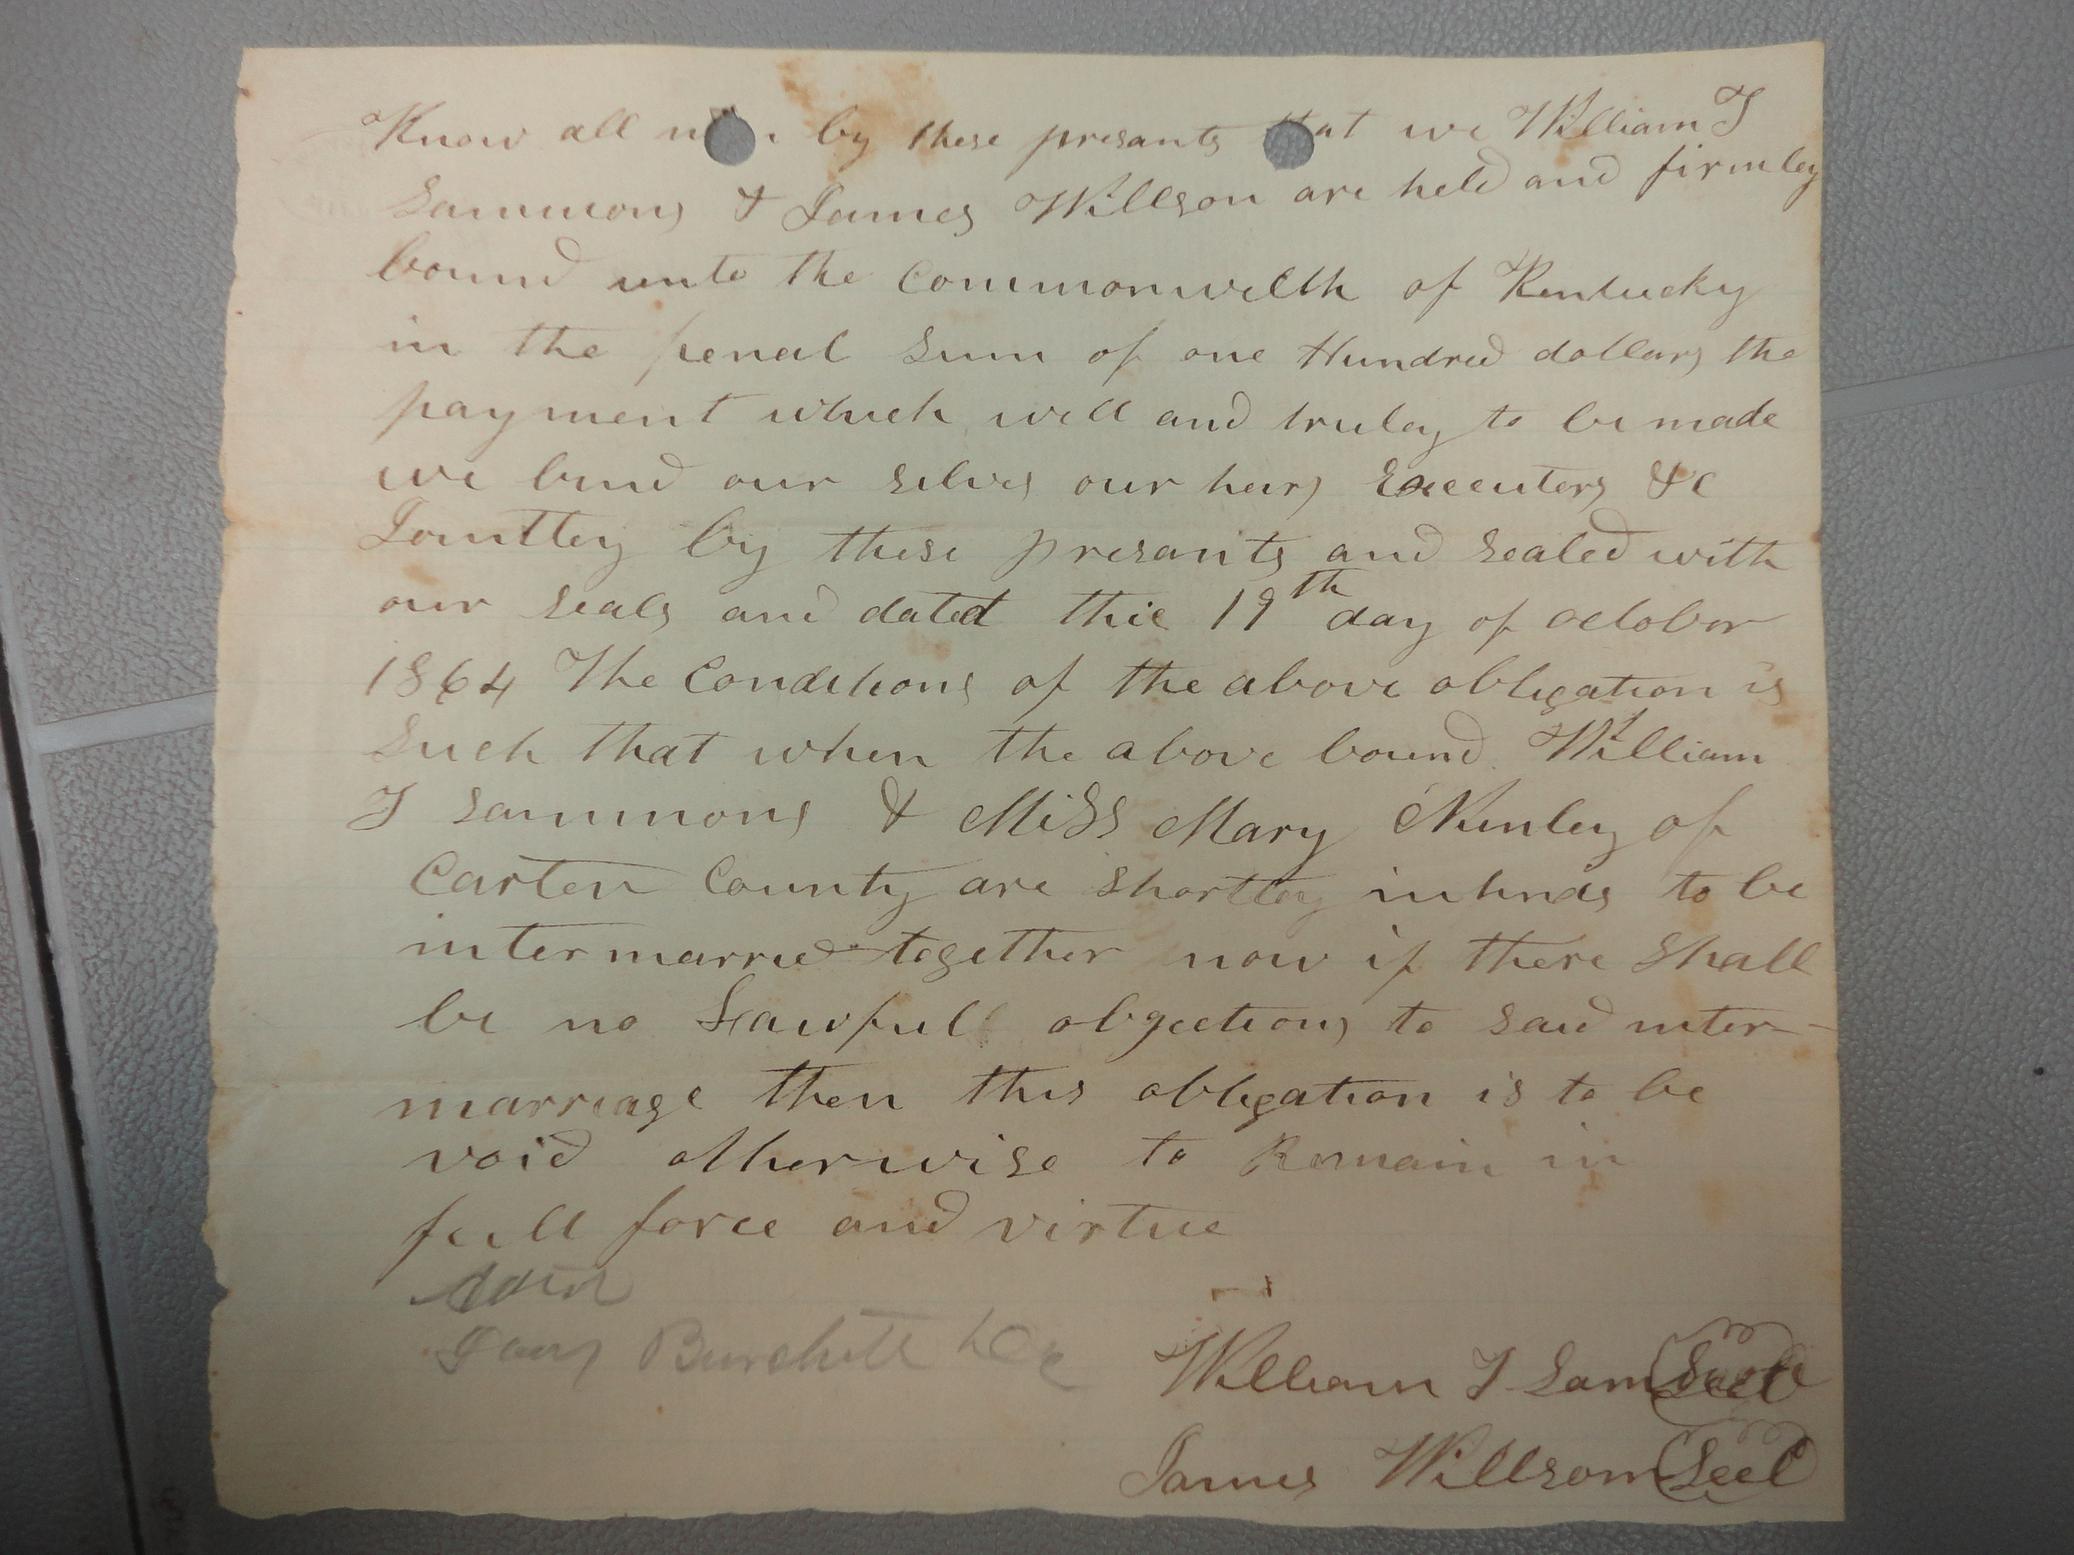 Know all men by these presants that we William T
Sammons & James Willson are held and firmley
bound unto the Commonwelth of Kentucky
in the penal Sum of one Hundred dollars the
payment which will and truley to be made
we bind our selves our heirs Executers &c
Jointley by these presants and sealed with
our seals and dated this 19th day of october
1864 The Conditions of the above obligation is
Such that when the above bound William
T Sammons & Miss Mary of
Carter County are shortley intends to be
intermarried together now if there Shall
be no Lawfull obgections to said inter-
marriage then this obligation is to be
void otherwise to Remain in
full force and virtue
Burchett
William T Sam Seel
James Willson Seel